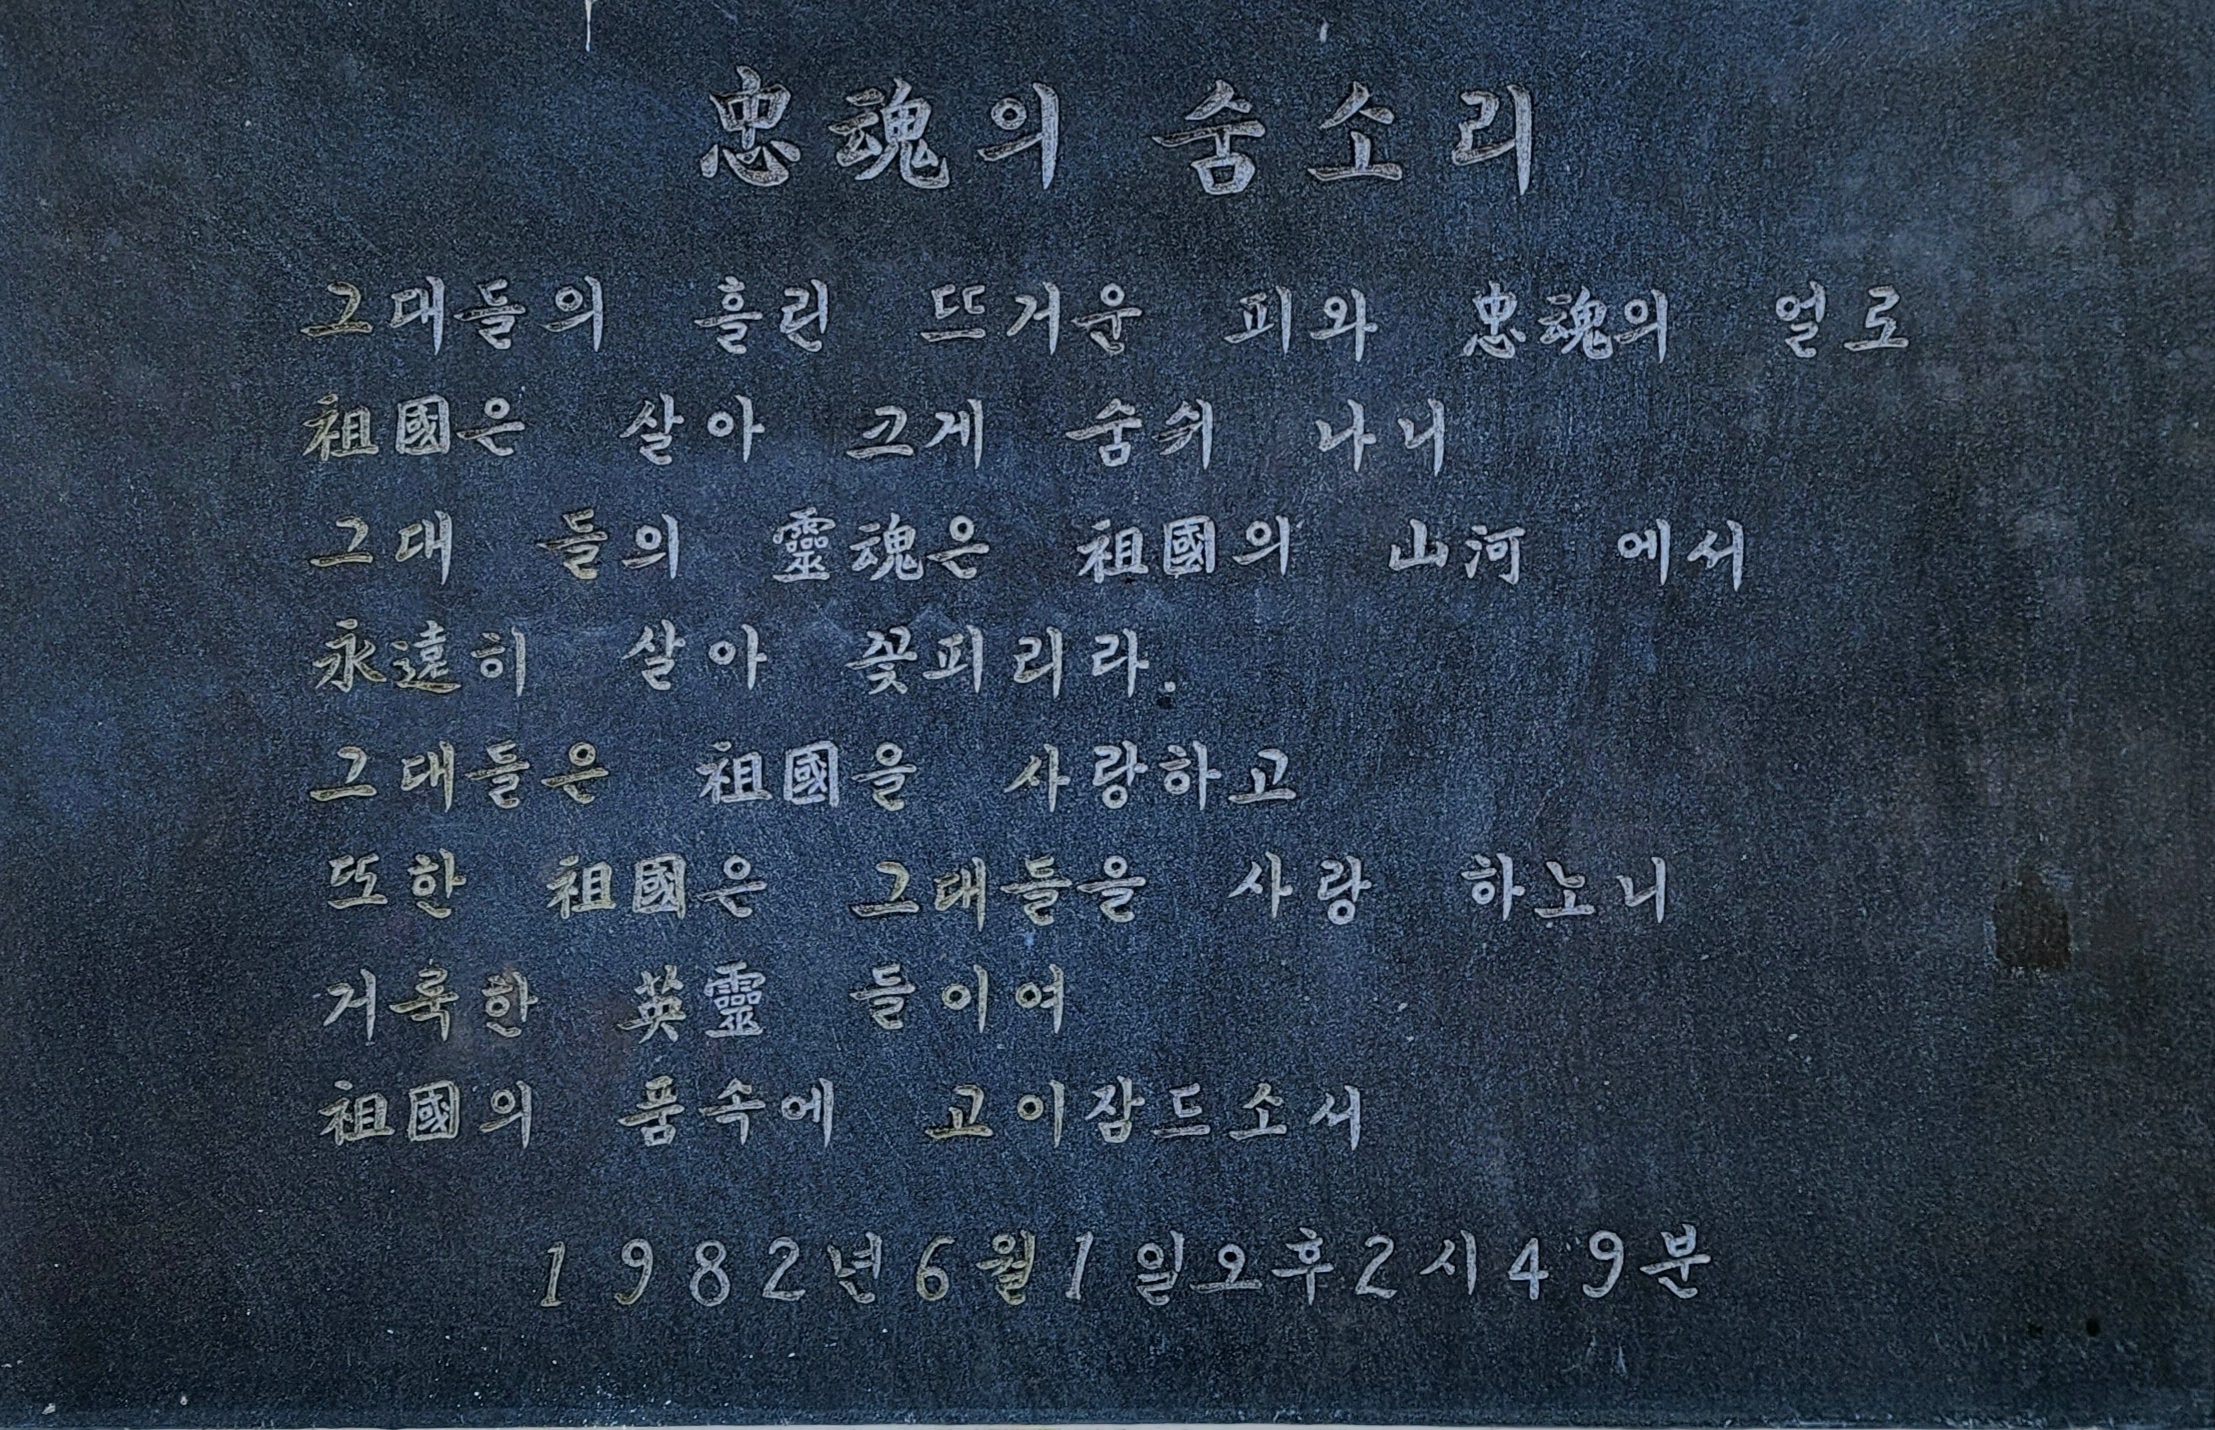 忠魂의 숨소리
그대들의 흘린 뜨거운 피와 忠魂의 얼로
祖國은 살아 크게 숨쉬 나니
그대 들의 靈魂은 祖國의 山河 에서
永遠히 살아 꽃피리라.
그대들은 祖國을 사랑하고
또한 祖國은 그대들을 사랑 하노니
거룩한 英靈 들이여
祖國의 품속에 고이잠드소서
1982년6월1일오후2시49분